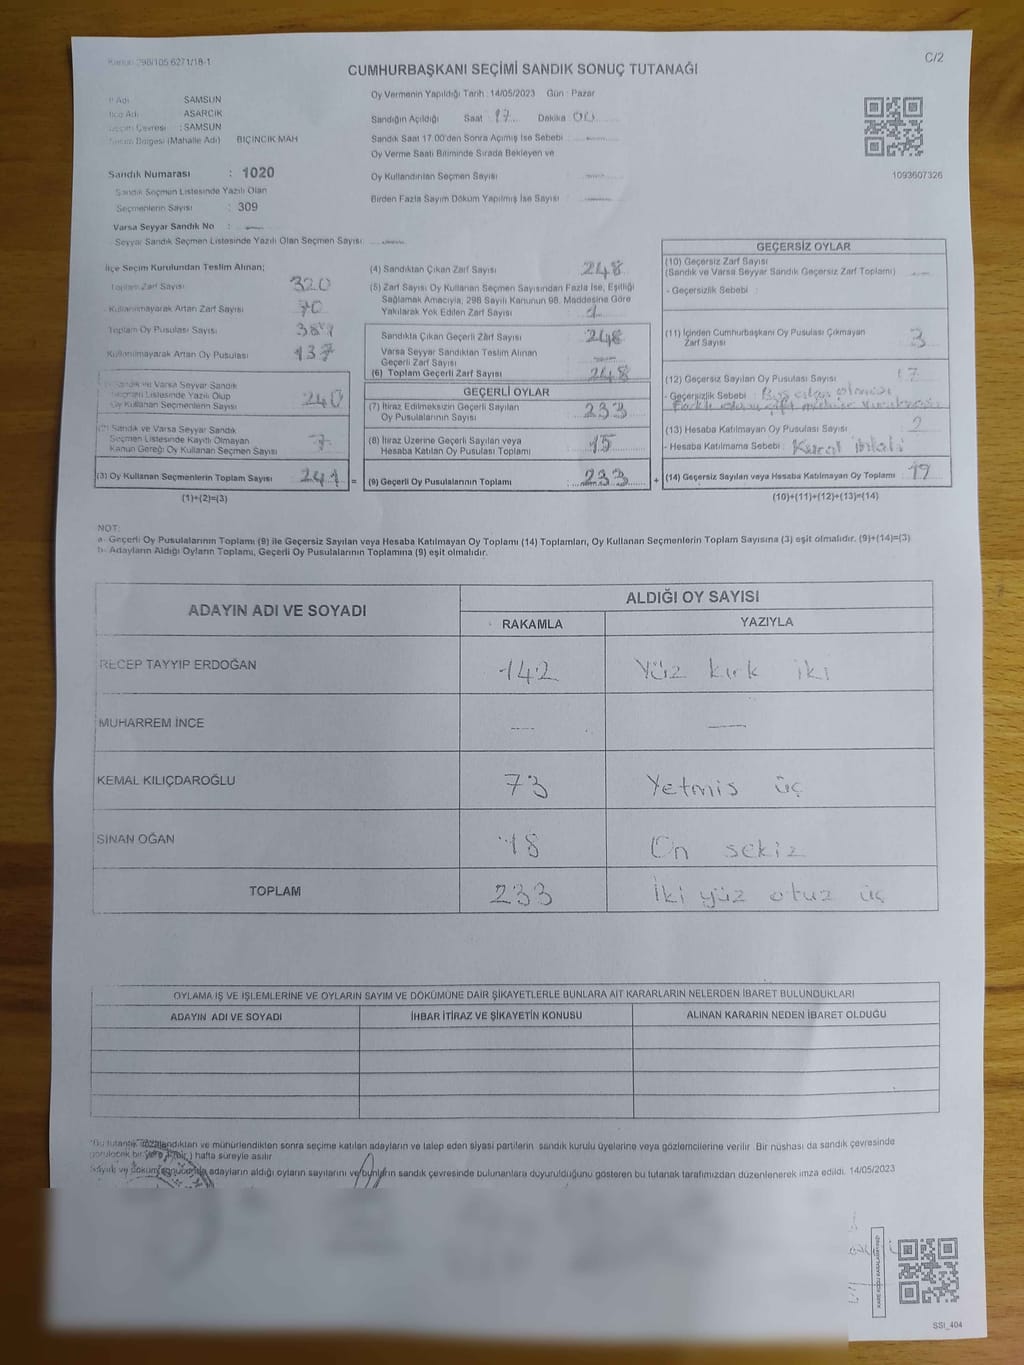 Kanun 298/105 6271/18-1
C/2
CUMHURBAŞKANI SEÇİMİ SANDIK SONUÇ TUTANAĞI
İl Adı SAMSUN
İlçe Adı ASARCIK
Seçim Çevresi : SAMSUN
Bölgesi (Mahalle Adı) BIÇINCIK MAH
Sandık Numarası : 1020
Sandık Seçmen Listesinde Yazılı Olan
Seçmenlerin Sayısı : 309
Varsa Seyyar Sandık No : —
Seyyar Sandık Seçmen Listesinde Yazılı Olan Seçmen Sayısı
Oy Vermenin Yapıldığı Tarih : 14/05/2023 Gün : Pazar
Sandığın Açıldığı Saat : 17 Dakika : 00
Sandık Saat 17.00'den Sonra Açımış İse Sebebi
Oy Verme Saati Bitiminde Sırada Bekleyen ve
Oy Kullandırılan Seçmen Sayısı
Birden Fazla Sayım Döküm Yapılmış İse Sayısı
1093607326
İlçe Seçim Kurulundan Teslim Alınan;
Toplam Zarf Sayısı 320
Kullanılmayarak Artan Zarf Sayısı 70
Toplam Oy Pusulası Sayısı
Kullanılmayarak Artan Oy Pusulası 137
Sandık ve Varsa Seyyar Sandık
Seçmen Listesinde Yazılı Olup
Oy Kullanan Seçmenlerin Sayısı 240
(2) Sandık ve Varsa Seyyar Sandık
Seçmen Listesinde Kayıtlı Olmayan
Kanun Gereği Oy Kullanan Seçmen Sayısı 7
(3) Oy Kullanan Seçmenlerin Toplam Sayısı
(1)+(2)=(3)
(4) Sandıktan Çıkan Zarf Sayısı 248
(5) Zarf Sayısı Oy Kullanan Seçmen Sayısından Fazla İse, Eşitliği
Sağlamak Amacıyla, 298 Sayılı Kanunun 98. Maddesine Göre
Yakılarak Yok Edilen Zarf Sayısı 1
Sandıkta Çıkan Geçerli Zarf Sayısı 248
Varsa Seyyar Sandıktan Teslim Alınan
Geçerli Zarf Sayısı
(6) Toplam Geçerli Zarf Sayısı 248
GEÇERLİ OYLAR
(7) İtiraz Edilmeksizin Geçerli Sayılan
Oy Pusulalarının Sayısı 233
(8) İtiraz Üzerine Geçerli Sayılan veya
Hesaba Katılan Oy Pusulası Toplamı 15
= (9) Geçerli Oy Pusulalarının Toplamı : 233 +
GEÇERSİZ OYLAR
(10) Geçersiz Zarf Sayısı
(Sandık ve Varsa Seyyar Sandık Geçersiz Zarf Toplamı)
- Geçersizlik Sebebi :
(11) İçinden Cumhurbaşkanı Oy Pusulası Çıkmayan
Zarf Sayısı 3
(12) Geçersiz Sayılan Oy Pusulası Sayısı 17
- Geçersizlik Sebebi
(13) Hesaba Katılmayan Oy Pusulası Sayısı : 2
- Hesaba Katılmama Sebebi : Kural ihlali
(14) Geçersiz Sayılan veya Hesaba Katılmayan Oy Toplamı
(10)+(11)+(12)+(13)=(14)
NOT:
a- Geçerli Oy Pusulalarının Toplamı (9) ile Geçersiz Sayılan veya Hesaba Katılmayan Oy Toplamı (14) Toplamları, Oy Kullanan Seçmenlerin Toplam Sayısına (3) eşit olmalıdır. (9)+(14)=(3)
b- Adayların Aldığı Oyların Toplamı, Geçerli Oy Pusulalarının Toplamına (9) eşit olmalıdır.
ADAYIN ADI VE SOYADI
ALDIĞI OY SAYISI
RAKAMLA YAZIYLA
RECEP TAYYIP ERDOĞAN 142 Yüz kırk iki
MUHARREM İNCE — —
KEMAL KILIÇDAROĞLU 73 Yetmis üç
SİNAN OĞAN 18 On sekiz
TOPLAM 233 İki yüz otuz üç
OYLAMA İŞ VE İŞLEMLERİNE VE OYLARIN SAYIM VE DÖKÜMÜNE DAİR ŞİKAYETLERLE BUNLARA AİT KARARLARIN NELERDEN İBARET BULUNDUKLARI
ADAYIN ADI VE SOYADI İHBAR İTİRAZ VE ŞİKAYETİN KONUSU ALINAN KARARIN NEDEN İBARET OLDUĞU
Bu tutanak imzalandıktan ve mühürlendikten sonra seçime katılan adayların ve talep eden siyasi partilerin sandık kurulu üyelerine veya gözlemcilerine verilir. Bir nüshası da sandık çevresinde
görülecek bir yere 1 (bir) hafta süreyle asılır
Sayım ve döküm sonucunda adayların aldığı oyların sayılarını ve bunların sandık çevresinde bulunanlara duyurulduğunu gösteren bu tutanak tarafımızdan düzenlenerek imza edildi. 14/05/2023
KARE KODU KARALAMAYINIZ!
SSI_404